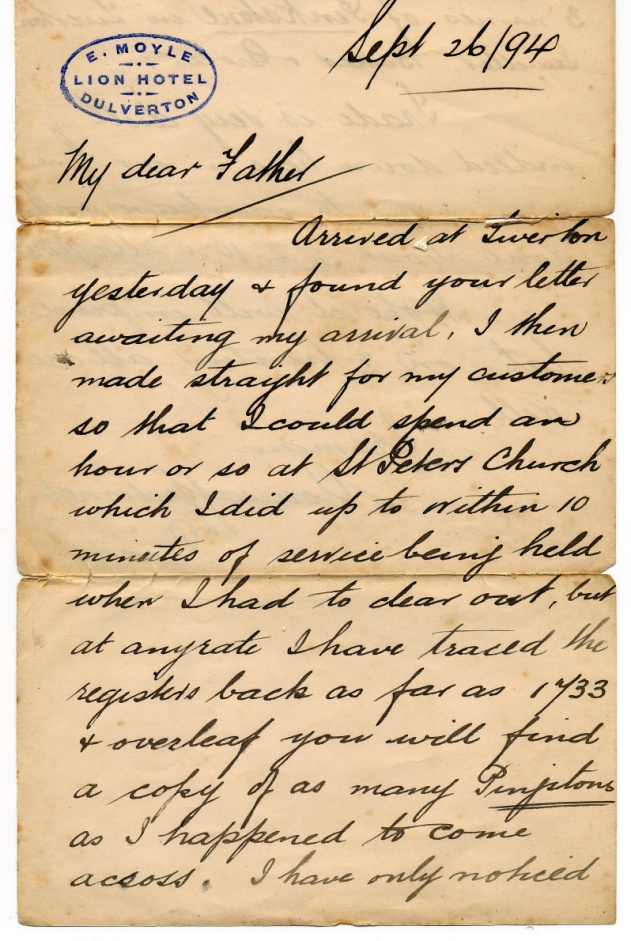 E. MOYLE
LION HOTEL
DULVERTON
Sept 26/94
My dear Father
Arrived at Tiverton
yesterday & found your letter
awaiting my arrival. I then
made straight for my customers
so that I could spend an
hour or so at St Peters Church
which I did up to within 10
minutes of service being held
when I had to clear out, but
at anyrate I have traced the
registers back as far as 1733
& overleaf you will find
a copy of as many Pingstons
as I happened to come
across. I have only noticed